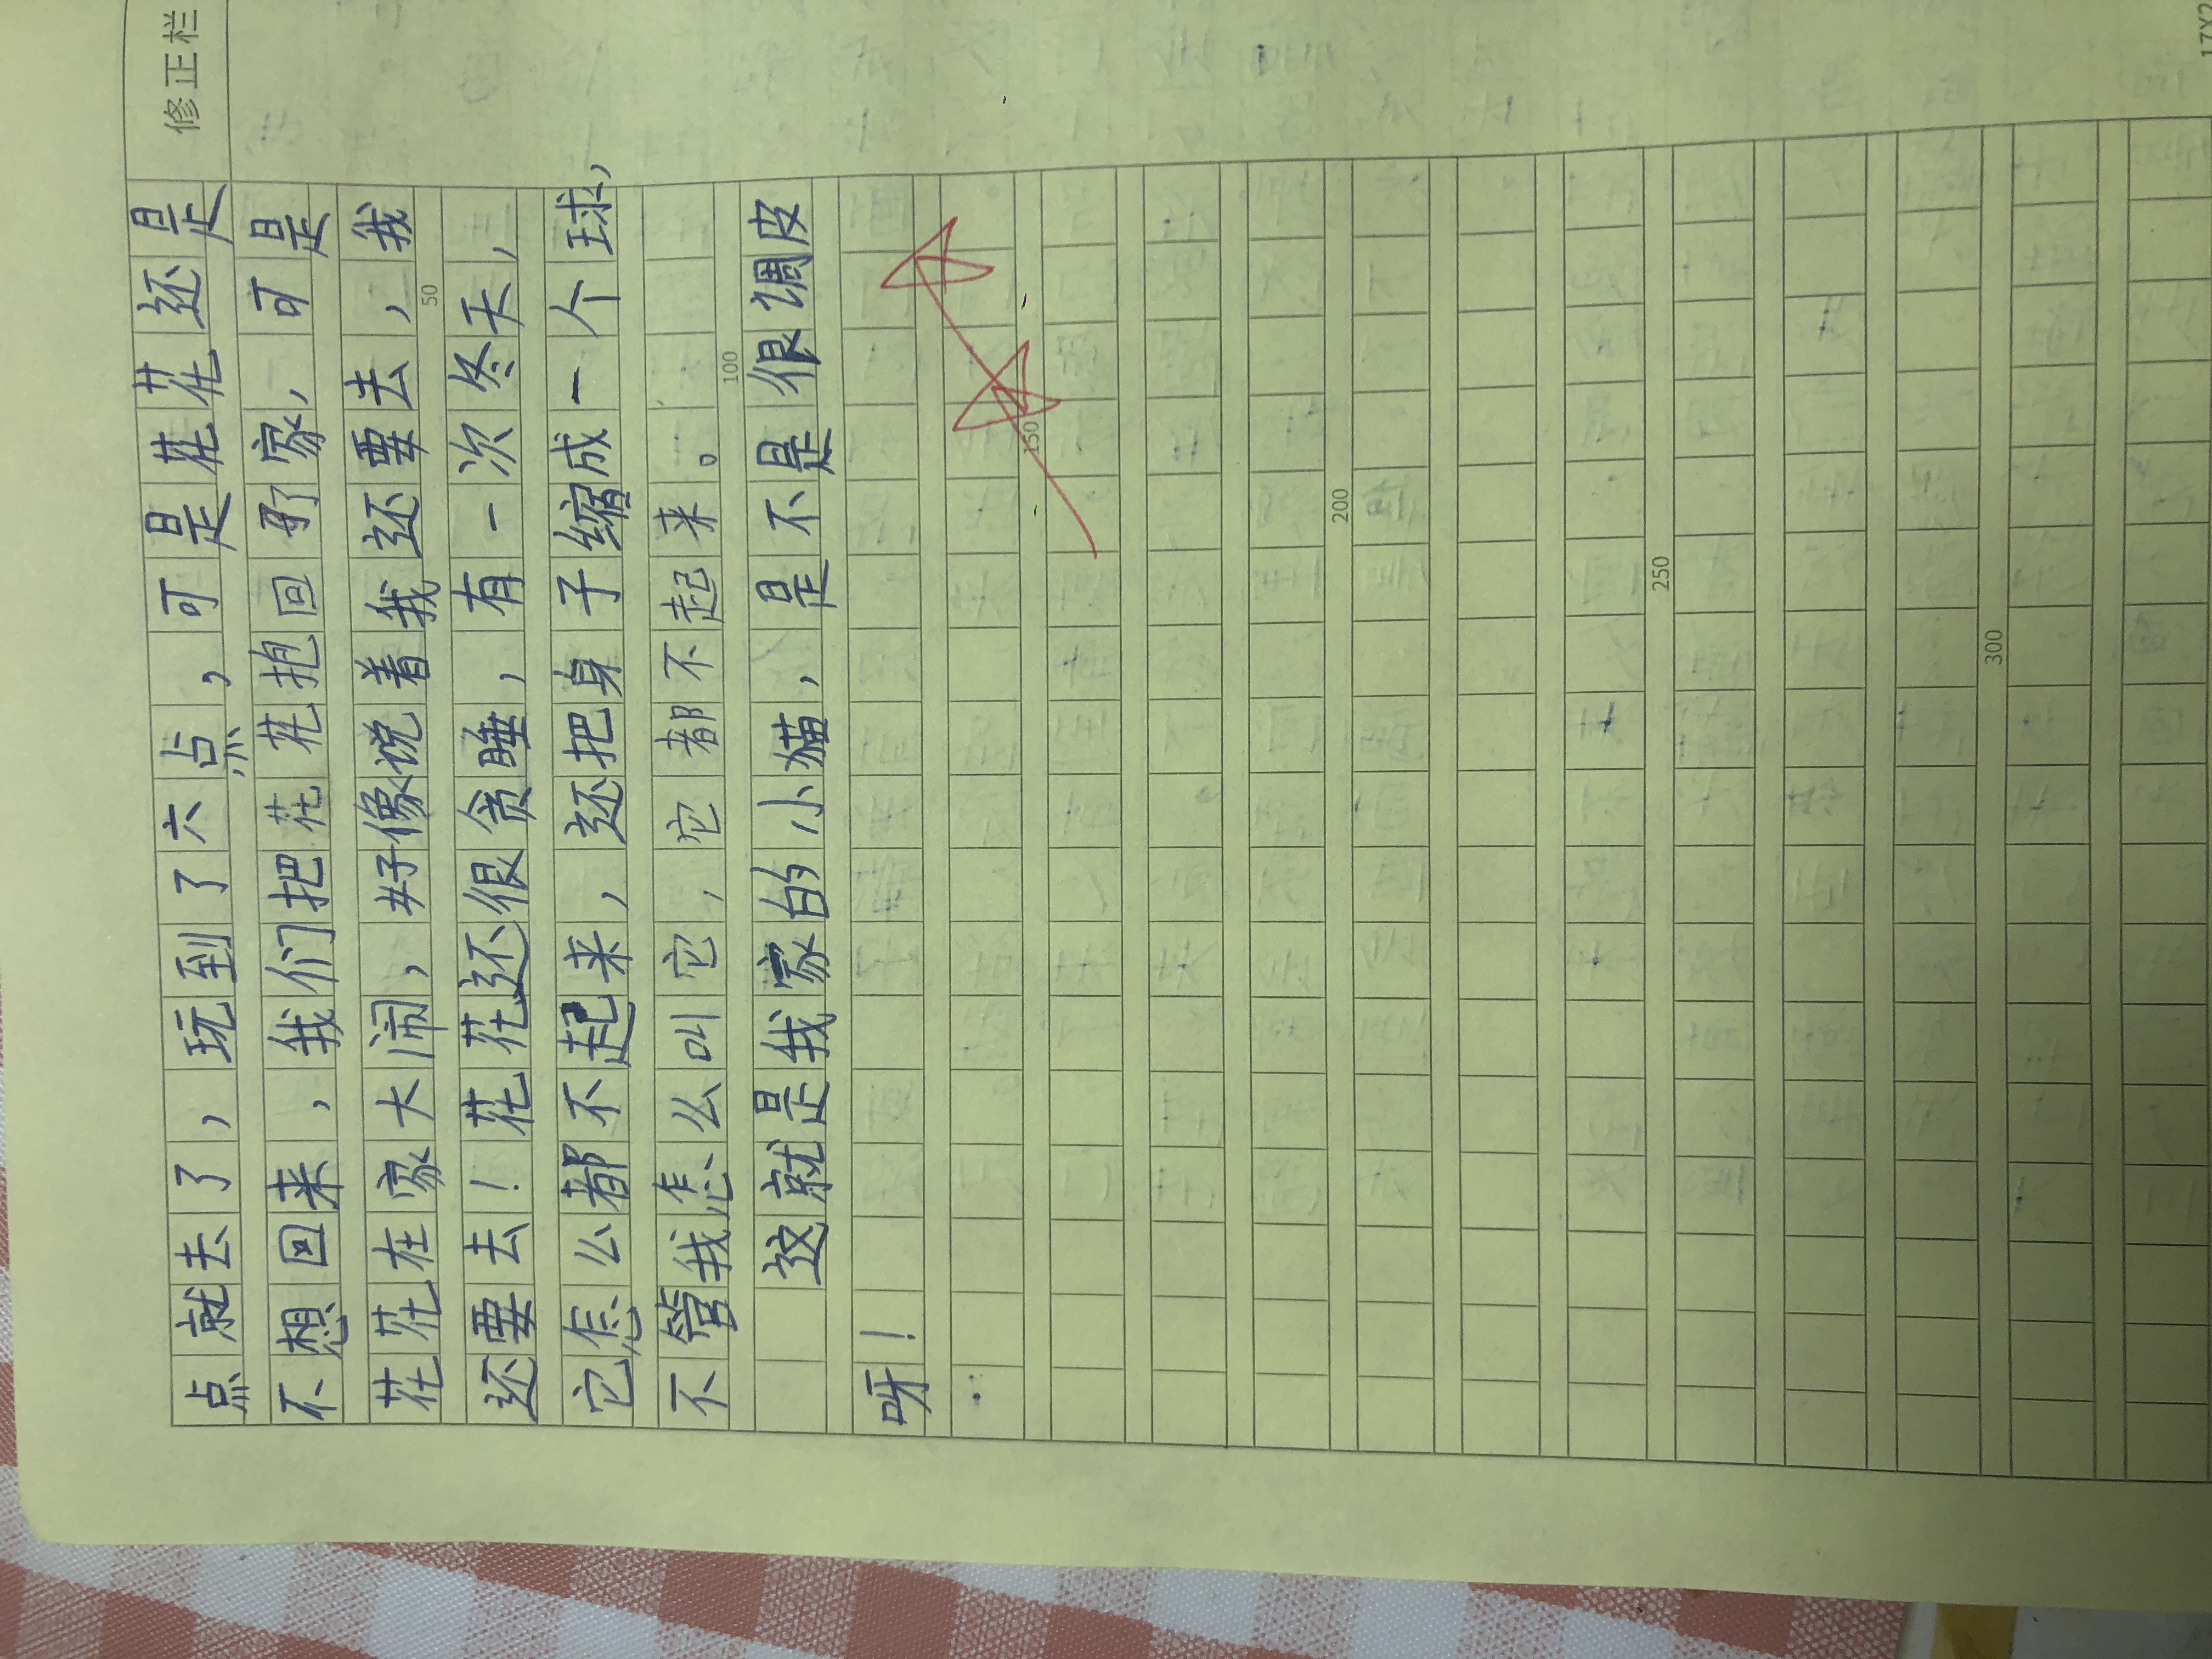 修正栏
点就去了，玩到了六点，可是花花还是
不想回来，我们把花花抱回了家，可是
花花在家大闹，好像说着我还要去，我
50
还要去！花花还很贪睡，有一次冬天，
它怎么都不起来，还把身子缩成一个球，
不管我怎么叫它，它都不起来。
100
这就是我家的小猫，是不是很调皮
呀！
150
200
250
300